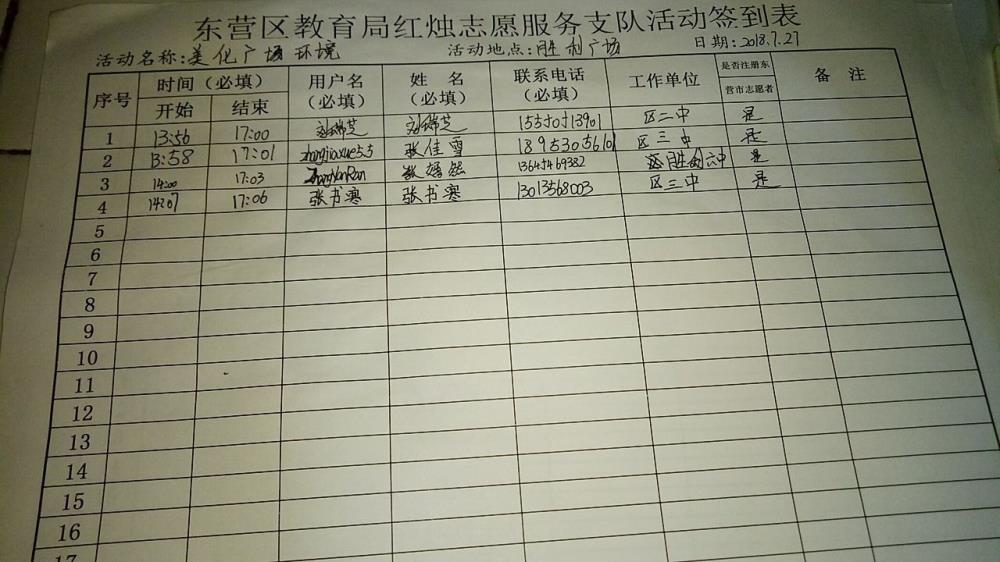 东营区教育局红烛志愿服务支队活动签到表
活动名称:美化广场环境 活动地点:胜利广场 日期:2018.7.27
序号 时间(必填) 用户名(必填) 姓名(必填) 联系电话(必填) 工作单位 是否注册东营市志愿者 备注
开始 结束
1 13:56 17:00 刘瑞芝 刘瑞芝 区二中 是
2 13:58 17:01 zhangjiaxue55 张佳雪 18953056101 区三中 是
3 14:00 17:03 ZhangYanRan 张嫣然 13645469382 胜利六中 是
4 14:07 17:06 张书寒 张书寒 13013568003 区三中 是
5
6
7
8
9
10
11
12
13
14
15
16
17